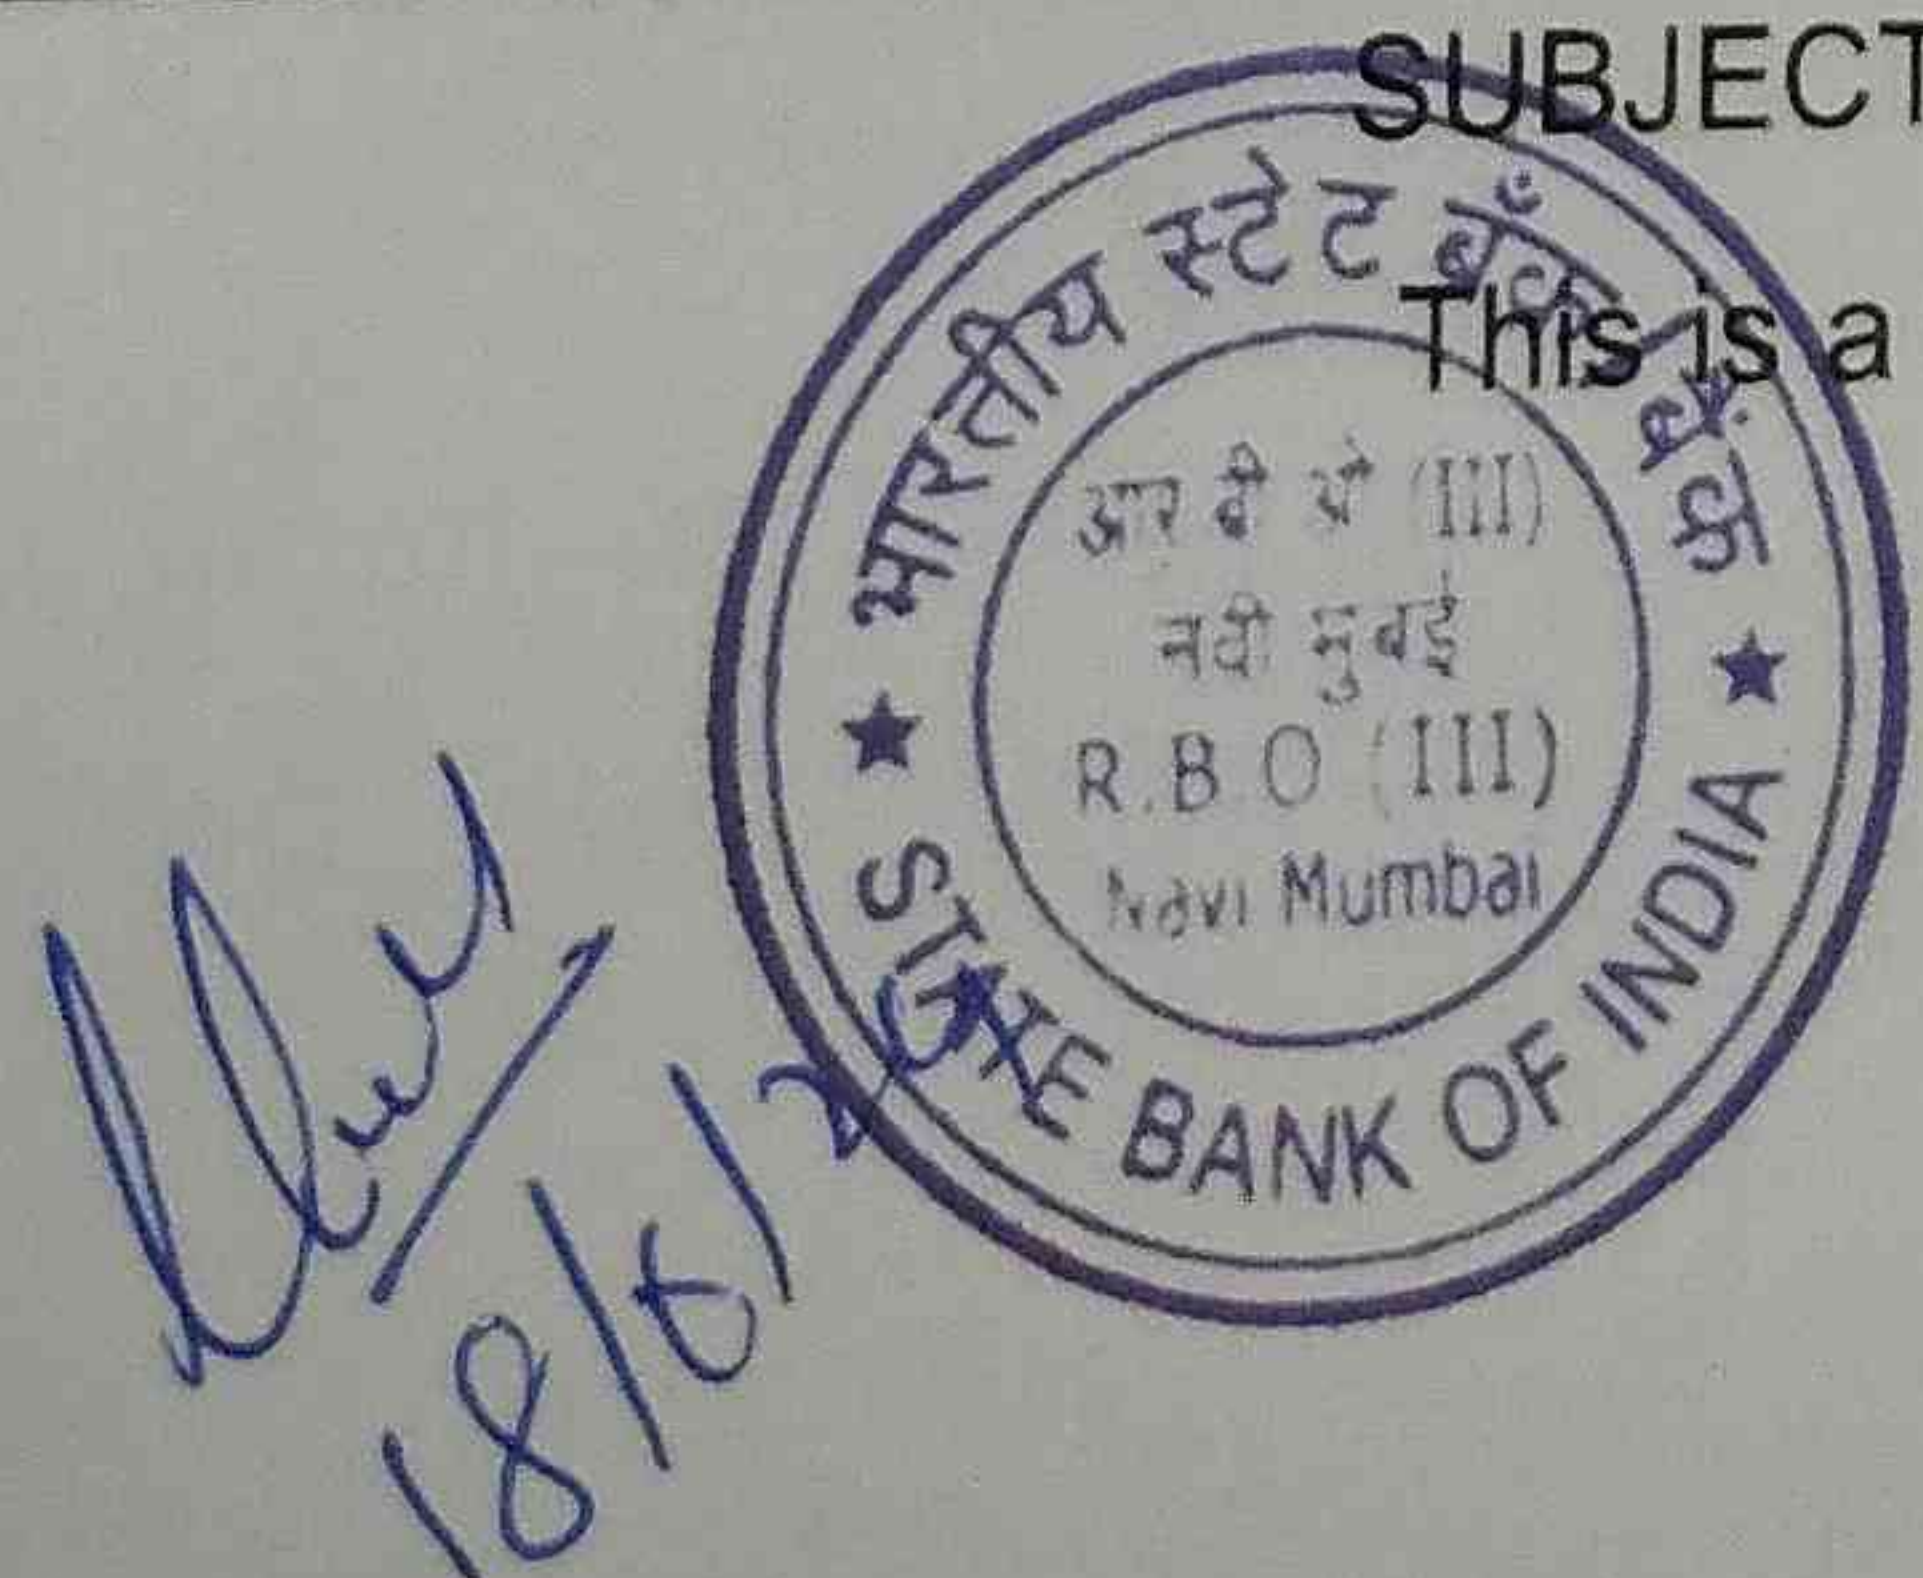 SUBJECT
This is a
भारतीय स्टेट बँक / बैंक
आर बी ओ (III)
नवी मुंबई
R.B.O (III)
Navi Mumbai
STATE BANK OF INDIA